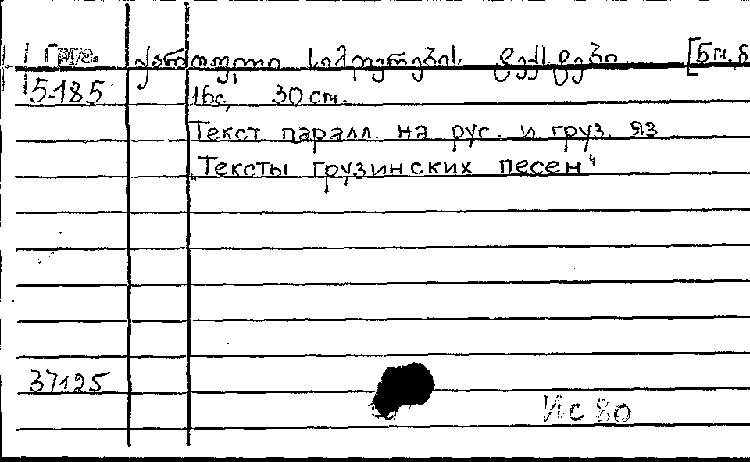 Груз. ქართული სიმღერების ტექსტები [Б.м., б
5-185 16с, 30 см.
Текст паралл. на рус. и груз. яз
"Тексты грузинских песен"
37125
Ис 80